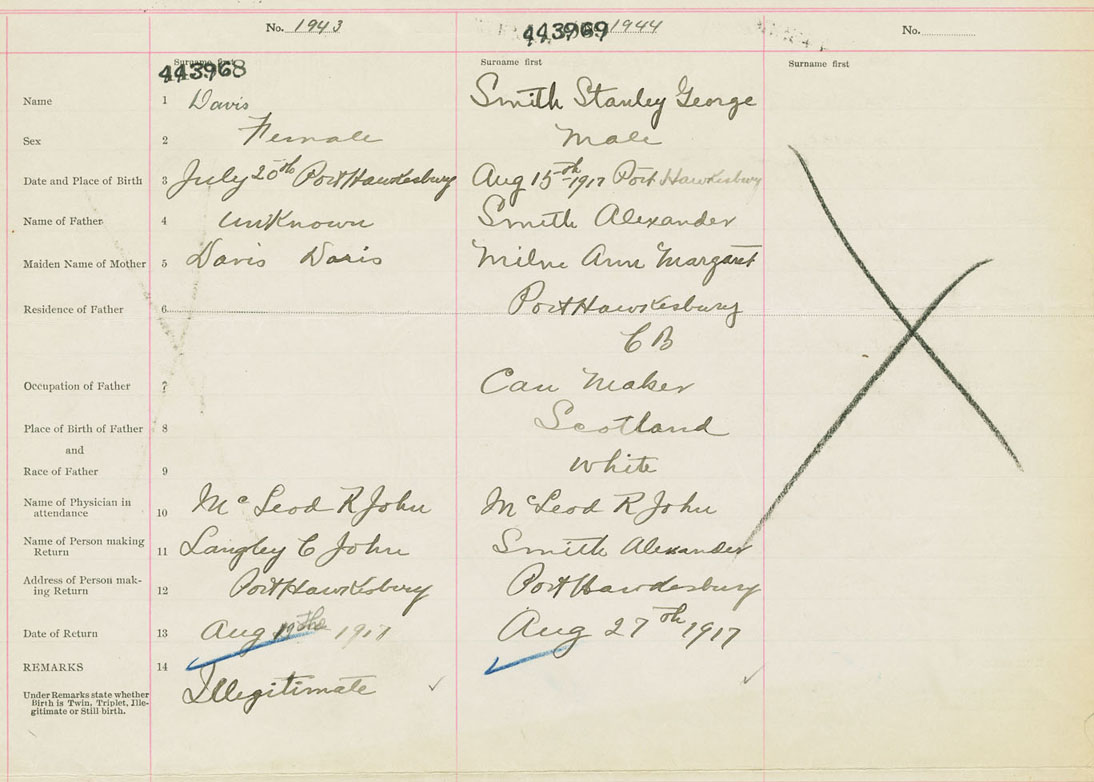 No. 1943
443969 1944
No.
Surname first
443968
Surname first
Surname first
Name 1 Davis Smith Stanley George
Sex 2 Female Male
Date and Place of Birth 3 July 20th Port Hawkesbury Aug 15th 1917 Port Hawkesbury
Name of Father 4 unKnown Smith Alexander
Maiden Name of Mother 5 Davis Doris Milne Ann Margaret
Residence of Father 6 Port Hawkesbury
C B
Occupation of Father 7 Car Maker
Place of Birth of Father 8 Scotland
and
Race of Father 9 White
Name of Physician in
attendance 10 McLeod R John McLeod R John
Name of Person making
Return 11 Langley C John Smith Alexander
Address of Person mak-
ing Return 12 Port Hawkesbury Port Hawdesbury
Date of Return 13 Aug 1917 Aug 27th 1917
REMARKS 14
Illegitimate
Under Remarks state whether
Birth is Twin, Triplet, Ille-
gitimate or Still birth.